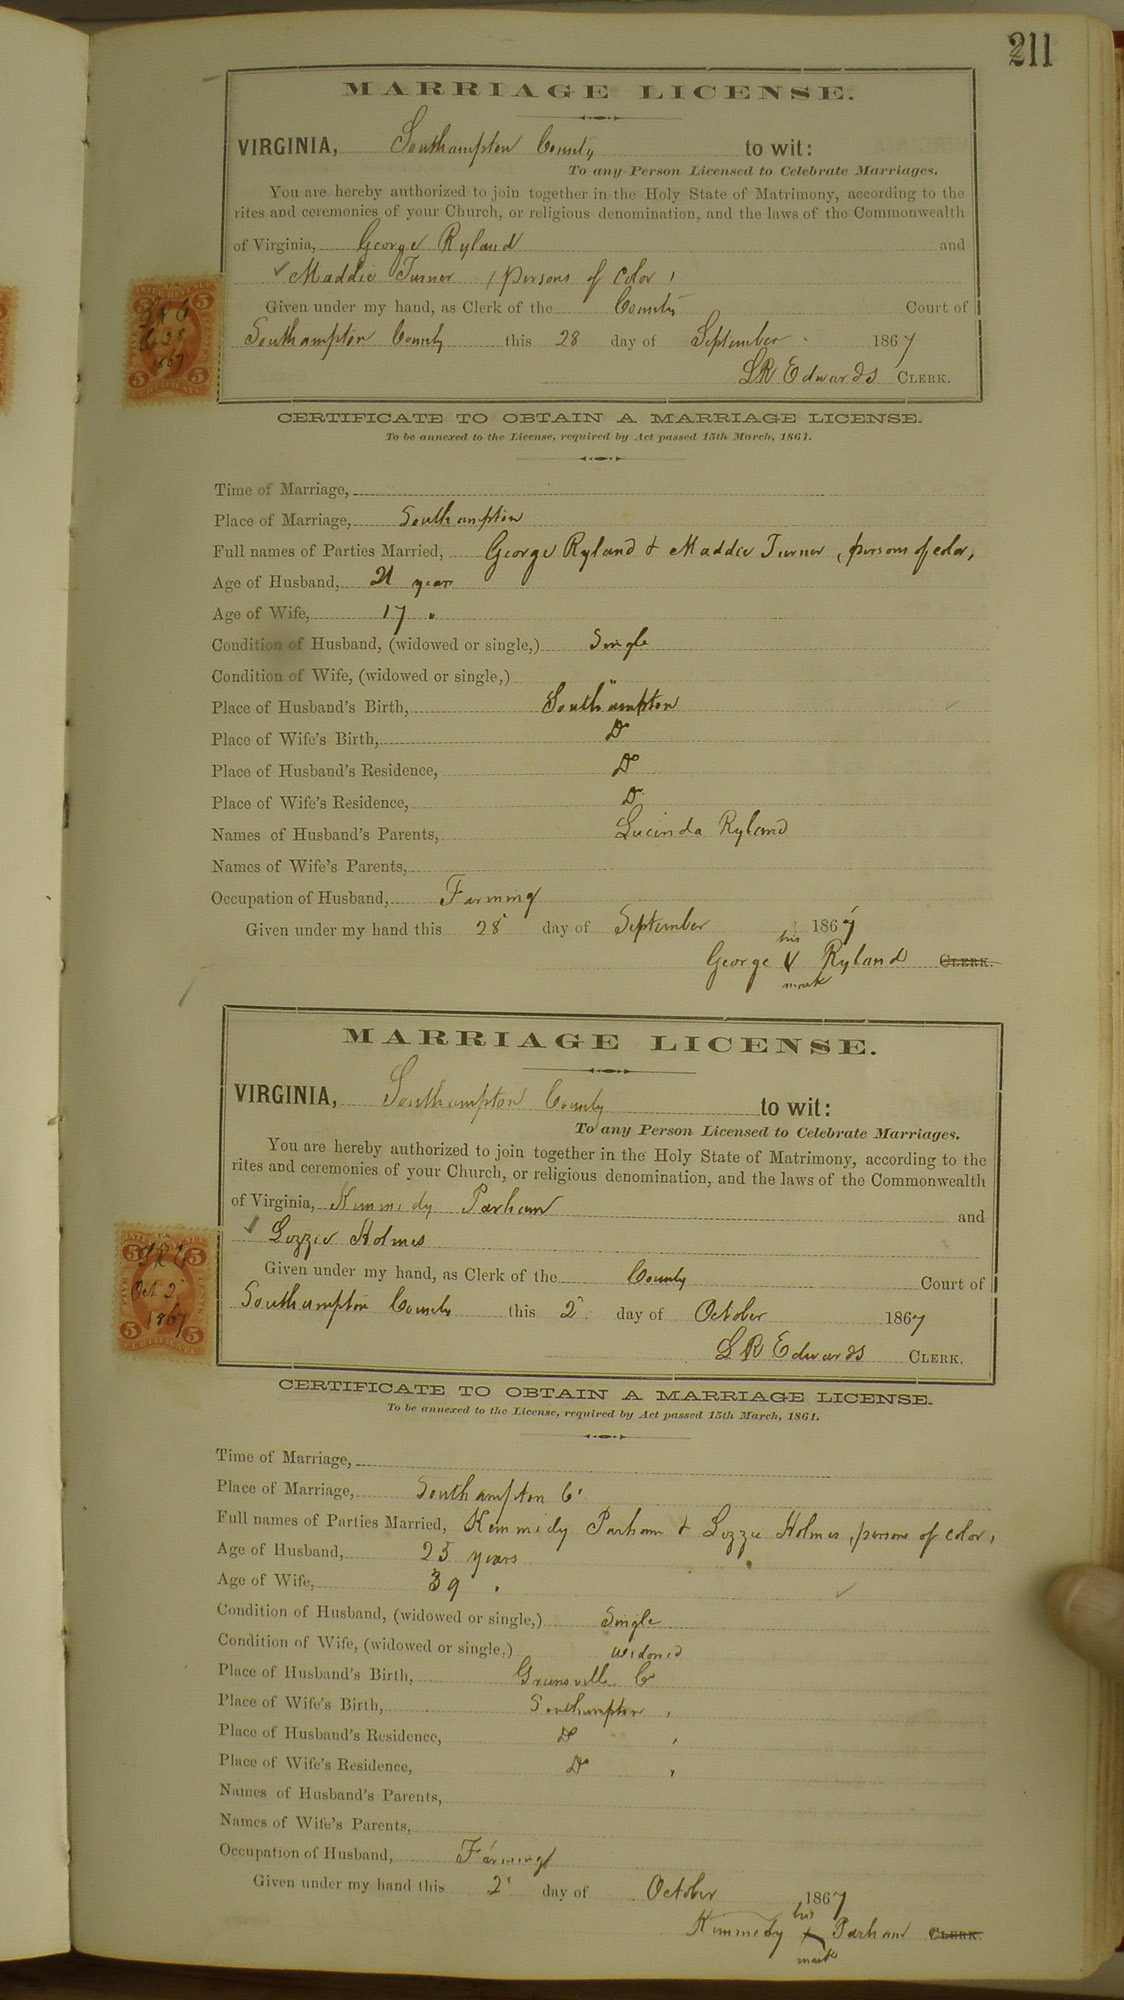 211
MARRIAGE LICENSE.
VIRGINIA, Southampton County to wit:
To any Person Licensed to Celebrate Marriages.
You are hereby authorized to join together in the Holy State of Matrimony, according to the
rites and ceremonies of your Church, or religious denomination, and the laws of the Commonwealth
of Virginia, George Ryland and
Maddie Turner (persons of color)
Given under my hand, as Clerk of the County Court of
Southampton County this 28 day of September 1867
LR Edwards CLERK.
5 5
LRE
28
1867
5 5
CERTIFICATE
CERTIFICATE TO OBTAIN A MARRIAGE LICENSE.
To be annexed to the License, required by Act passed 15th March, 1861.
Time of Marriage,
Place of Marriage, Southampton
Full names of Parties Married, George Ryland & Maddie Turner, (persons of color)
Age of Husband, 21 years
Age of Wife, 17 "
Condition of Husband, (widowed or single,) Single
Condition of Wife, (widowed or single,) "
Place of Husband's Birth, Southampton
Place of Wife's Birth, Do
Place of Husband's Residence, Do
Place of Wife's Residence, Do
Names of Husband's Parents, Lucinda Ryland
Names of Wife's Parents,
Occupation of Husband, Farming
Given under my hand this 28 day of September 1867
George his Ryland CLERK.
mark
MARRIAGE LICENSE.
VIRGINIA, Southampton County to wit:
To any Person Licensed to Celebrate Marriages.
You are hereby authorized to join together in the Holy State of Matrimony, according to the
rites and ceremonies of your Church, or religious denomination, and the laws of the Commonwealth
of Virginia, Kennedy Parham and
Lizzie Holmes
Given under my hand, as Clerk of the County Court of
Southampton County this 2 day of October 1867
LR Edwards CLERK.
5 5
LRE
Oct 2
1867
5 5
CERTIFICATE
CERTIFICATE TO OBTAIN A MARRIAGE LICENSE.
To be annexed to the License, required by Act passed 15th March, 1861.
Time of Marriage,
Place of Marriage, Southampton Co
Full names of Parties Married, Kennedy Parham & Lizzie Holmes, persons of color,
Age of Husband, 25 years
Age of Wife, 39 "
Condition of Husband, (widowed or single,) Single
Condition of Wife, (widowed or single,) widowed
Place of Husband's Birth, Greensville Co
Place of Wife's Birth, Southampton "
Place of Husband's Residence, Do "
Place of Wife's Residence, Do "
Names of Husband's Parents,
Names of Wife's Parents,
Occupation of Husband, Farming
Given under my hand this 2 day of October 1867
Kennedy his x Parham CLERK.
mark